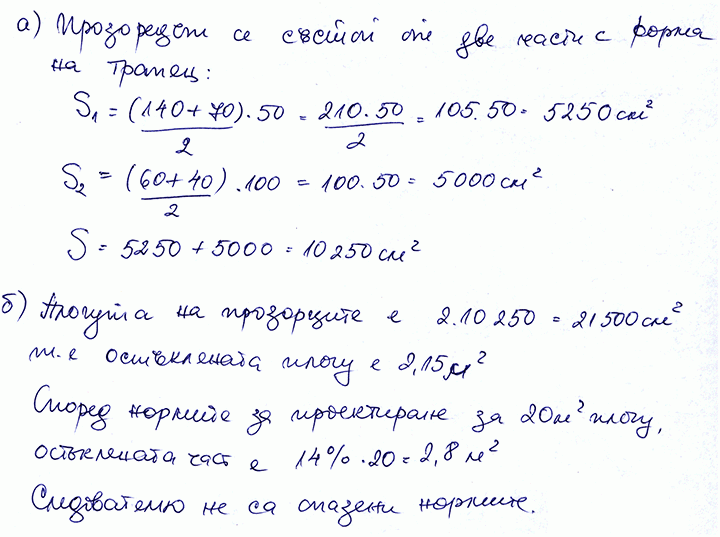 а) Прозорецът се състои от две части с форма
на трапец:
S₁ = (140+70)/2 · 50 = 210·50/2 = 105·50 = 5250 см²
S₂ = (60+40)/2 · 100 = 100·50 = 5000 см²
S = 5250 + 5000 = 10250 см²
б) Площта на прозорците е 2.10 250 = 21500 см²
т.е остъклената площ е 2,15 м²
Според нормите за проектиране за 20 м² площ,
остъклената част е 14% · 20 = 2,8 м²
Следователно не са спазени нормите.